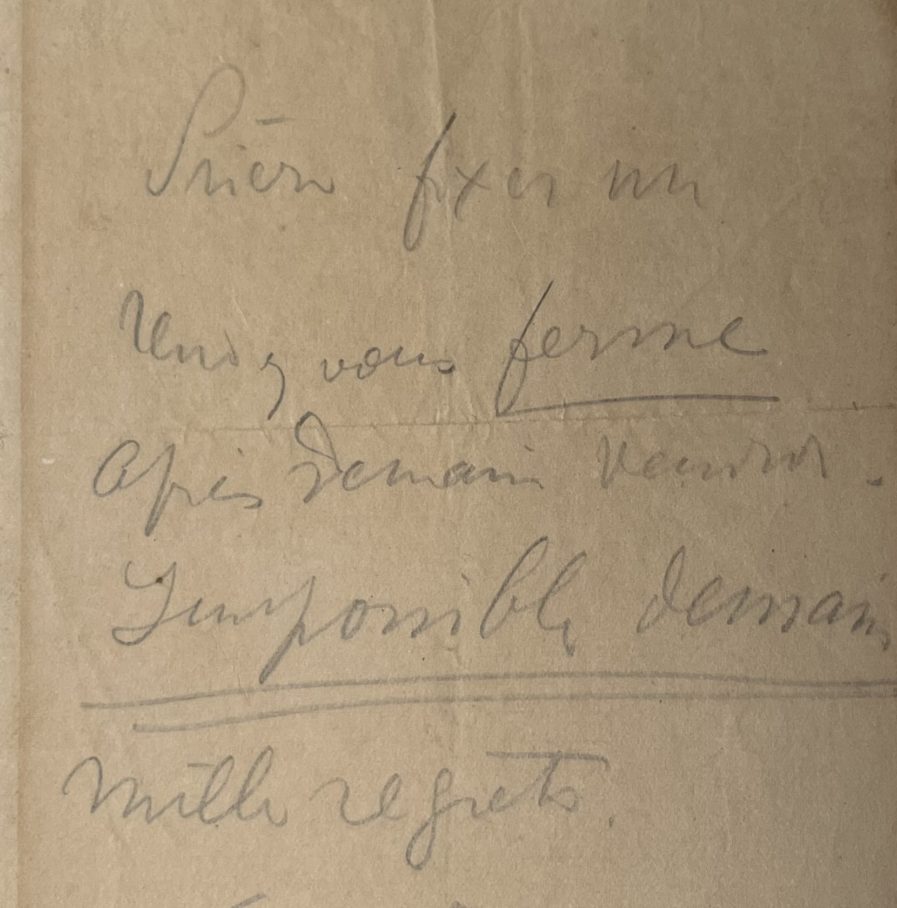 Prière fixer un
rendez vous ferme
après demain vendredi.
Impossible demain
mille regrets.